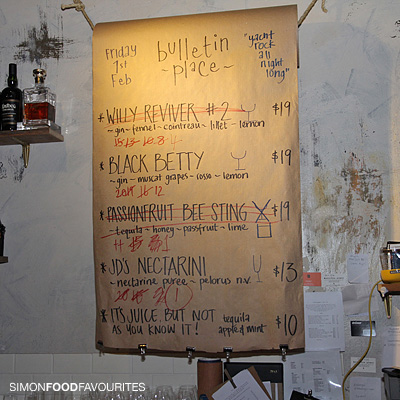 Friday
1st
Feb
bulletin
~ place ~
"yacht
rock
all
night
long"
* WILLY REVIVER #2 $19
~gin~fennel~cointreau~lillet~lemon
* BLACK BETTY $19
~gin~muscat grapes~rosso~lemon
* PASSIONFRUIT BEE STING $19
~tequila~honey~passfruit~lime
* JD'S NECTARINI $13
~nectarine puree~pelorus n.v.
* IT'S JUICE, BUT NOT
AS YOU KNOW IT!
tequila
apple & mint
$10
SIMONFOODFAVOURITES